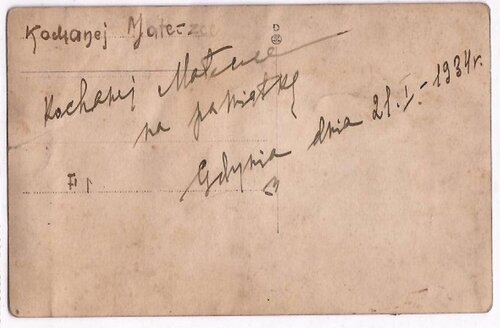 Kochanej Mateczce
Kochanej Mateczce
na pamiątkę
Gdynia dnia 21.I.-1934r.
F 1